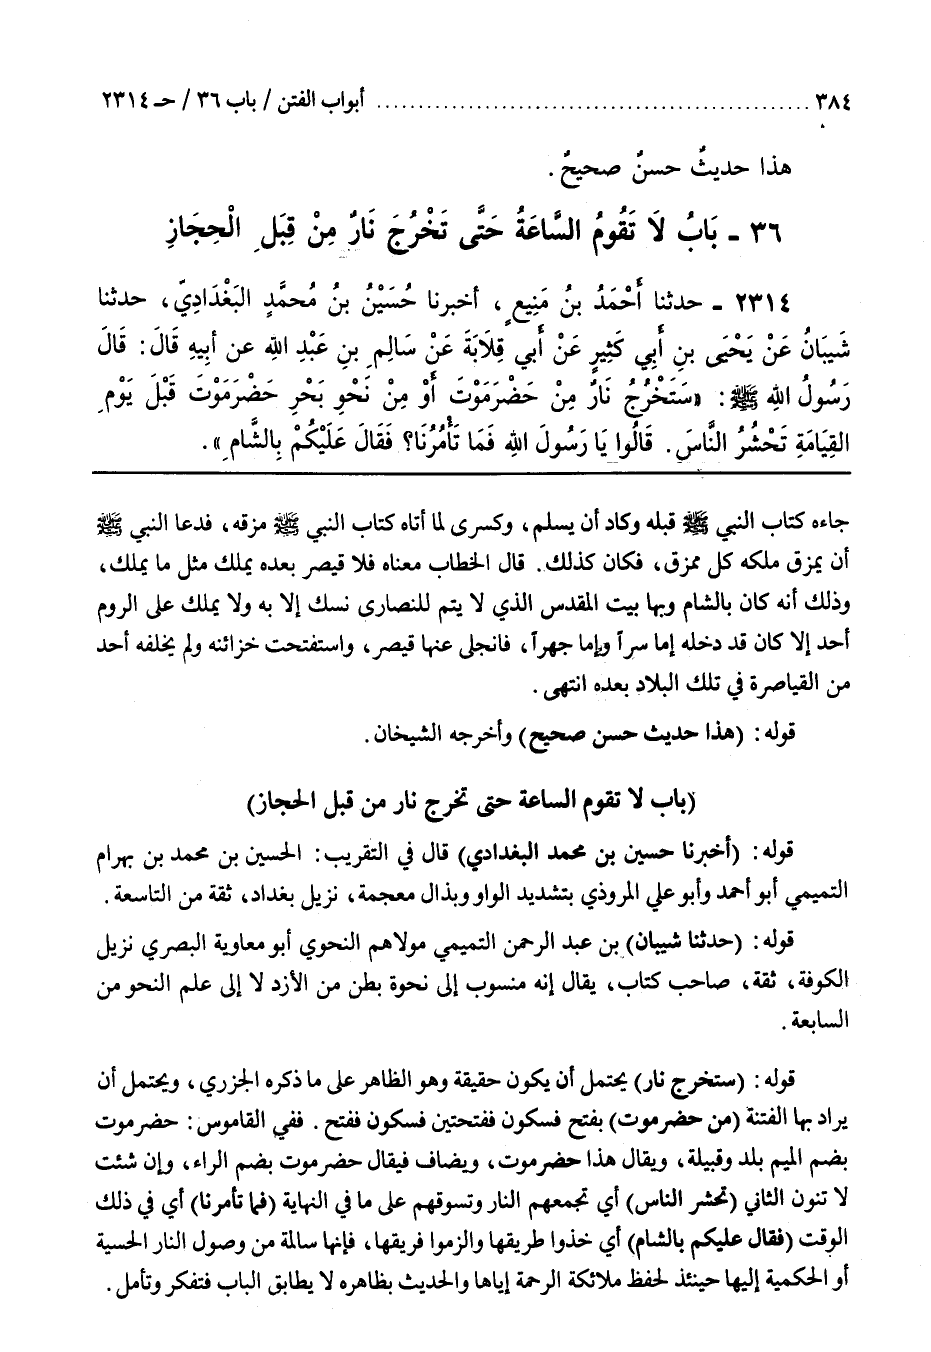 ٣٨٤ ........................................................ أبواب الفتن / باب ٣٦ / حـ ٢٣١٤
هذا حديثٌ حسنٌ صحيحٌ .
٣٦ ـ بَابُ لَا تَقُومُ السَّاعَةُ حَتَّى تَخْرُجَ نَارٌ مِنْ قِبَلِ الْحِجَازِ
٢٣١٤ ـ حدثنا أَحْمَدُ بنُ مَنِيعٍ ، أخبرنا حُسَيْنُ بنُ مُحمَّدٍ البَغْدَادِيّ ، حدثنا
شَيبَانُ عَنْ يَحْيَى بنِ أَبِي كَثِيرٍ عَنْ أَبي قِلَابَةَ عَنْ سَالِمِ بنِ عَبْدِ اللهِ عن أَبيهِ قَالَ : قَالَ
رَسُولُ اللهِ ﷺ : «سَتَخْرُجُ نَارٌ مِنْ حَضْرَمَوْتَ أَوْ مِنْ نَحْوِ بَحْرِ حَضْرَمَوْتَ قَبْلَ يَوْمِ
القِيَامَةِ تَحْشُرُ النَّاسَ . قَالُوا يَا رَسُولَ اللهِ فَمَا تَأْمُرُنَا؟ فَقَالَ عَلَيْكُمْ بِالشَّامِ» .
جاءه كتاب النبي ﷺ قبله وكاد أن يسلم، وكسرى لما أتاه كتاب النبي ﷺ مزقه، فدعا النبي ﷺ
أن يمزق ملكه كل ممزق، فكان كذلك. قال الخطاب معناه فلا قيصر بعده يملك مثل ما يملك،
وذلك أنه كان بالشام وبها بيت المقدس الذي لا يتم للنصارى نسك إلا به ولا يملك على الروم
أحد إلا كان قد دخله إما سراً وإما جهراً، فانجلى عنها قيصر، واستفتحت خزائنه ولم يخلفه أحد
من القياصرة في تلك البلاد بعده انتهى .
قوله : (هذا حديث حسن صحيح) وأخرجه الشيخان .
(باب لا تقوم الساعة حتى تخرج نار من قبل الحجاز)
قوله : (أخبرنا حسين بن محمد البغدادي) قال في التقريب : الحسين بن محمد بن بهرام
التميمي أبو أحمد وأبو علي المروذي بتشديد الواو وبذال معجمة، نزيل بغداد، ثقة من التاسعة .
قوله : (حدثنا شيبان) بن عبد الرحمن التميمي مولاهم النحوي أبو معاوية البصري نزيل
الكوفة، ثقة، صاحب كتاب، يقال إنه منسوب إلى نحوة بطن من الأزد لا إلى علم النحو من
السابعة .
قوله : (ستخرج نار) يحتمل أن يكون حقيقة وهو الظاهر على ما ذكره الجزري ، ويحتمل أن
يراد بها الفتنة (من حضرموت) بفتح فسكون ففتحتين فسكون ففتح . ففي القاموس : حضرموت
بضم الميم بلد وقبيلة، ويقال هذا حضرموت، ويضاف فيقال حضرموت بضم الراء، وإن شئت
لا تنون الثاني (تحشر الناس) أي تجمعهم النار وتسوقهم على ما في النهاية (فما تأمرنا) أي في ذلك
الوقت (فقال عليكم بالشام) أي خذوا طريقها والزموا فريقها، فإنها سالمة من وصول النار الحسية
أو الحكمية إليها حينئذ لحفظ ملائكة الرحمة إياها والحديث بظاهره لا يطابق الباب فتفكر وتأمل .